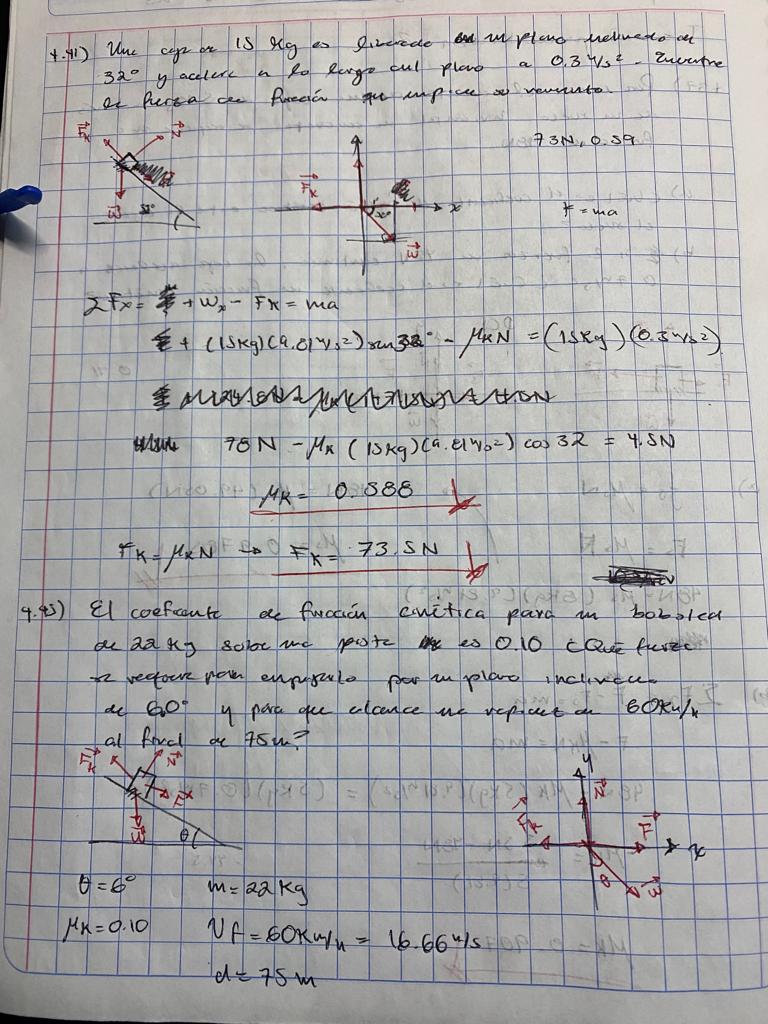 4.41) Una caja de 15 Kg es liberada en un plano inclinado de
32° y acelera a lo largo del plano a 0.3 m/s². Encuentre
la fuerza de fricción que impide su movimiento.
73N, 0.59
F⃗k N⃗
32°
W⃗
F⃗k x
W⃗
F = ma
ΣFx = + Wx - Fk = ma
+ (15Kg)(9.81 m/s²) sen 32° - μkN = (15Kg)(0.3 m/s²)
78N - μk (15Kg)(9.81 m/s²) cos 32 = 4.5N
μk = 0.588
Fk = μkN → Fk = 73.5N
4.43) El coeficiente de fricción cinética para un bobsled
de 22 Kg sobre una pista es 0.10 ¿Qué fuerza
se requiere para empujarlo por un plano inclinado
de 6.0° y para que alcance una rapidez de 60Km/h
al final de 75m?
F⃗k N⃗
F⃗
W⃗
θ
y
N⃗
F⃗k F⃗ x
θ W⃗
θ = 6° m = 22 Kg
μk = 0.10 Vf = 60Km/h = 16.66 m/s
d = 75 m